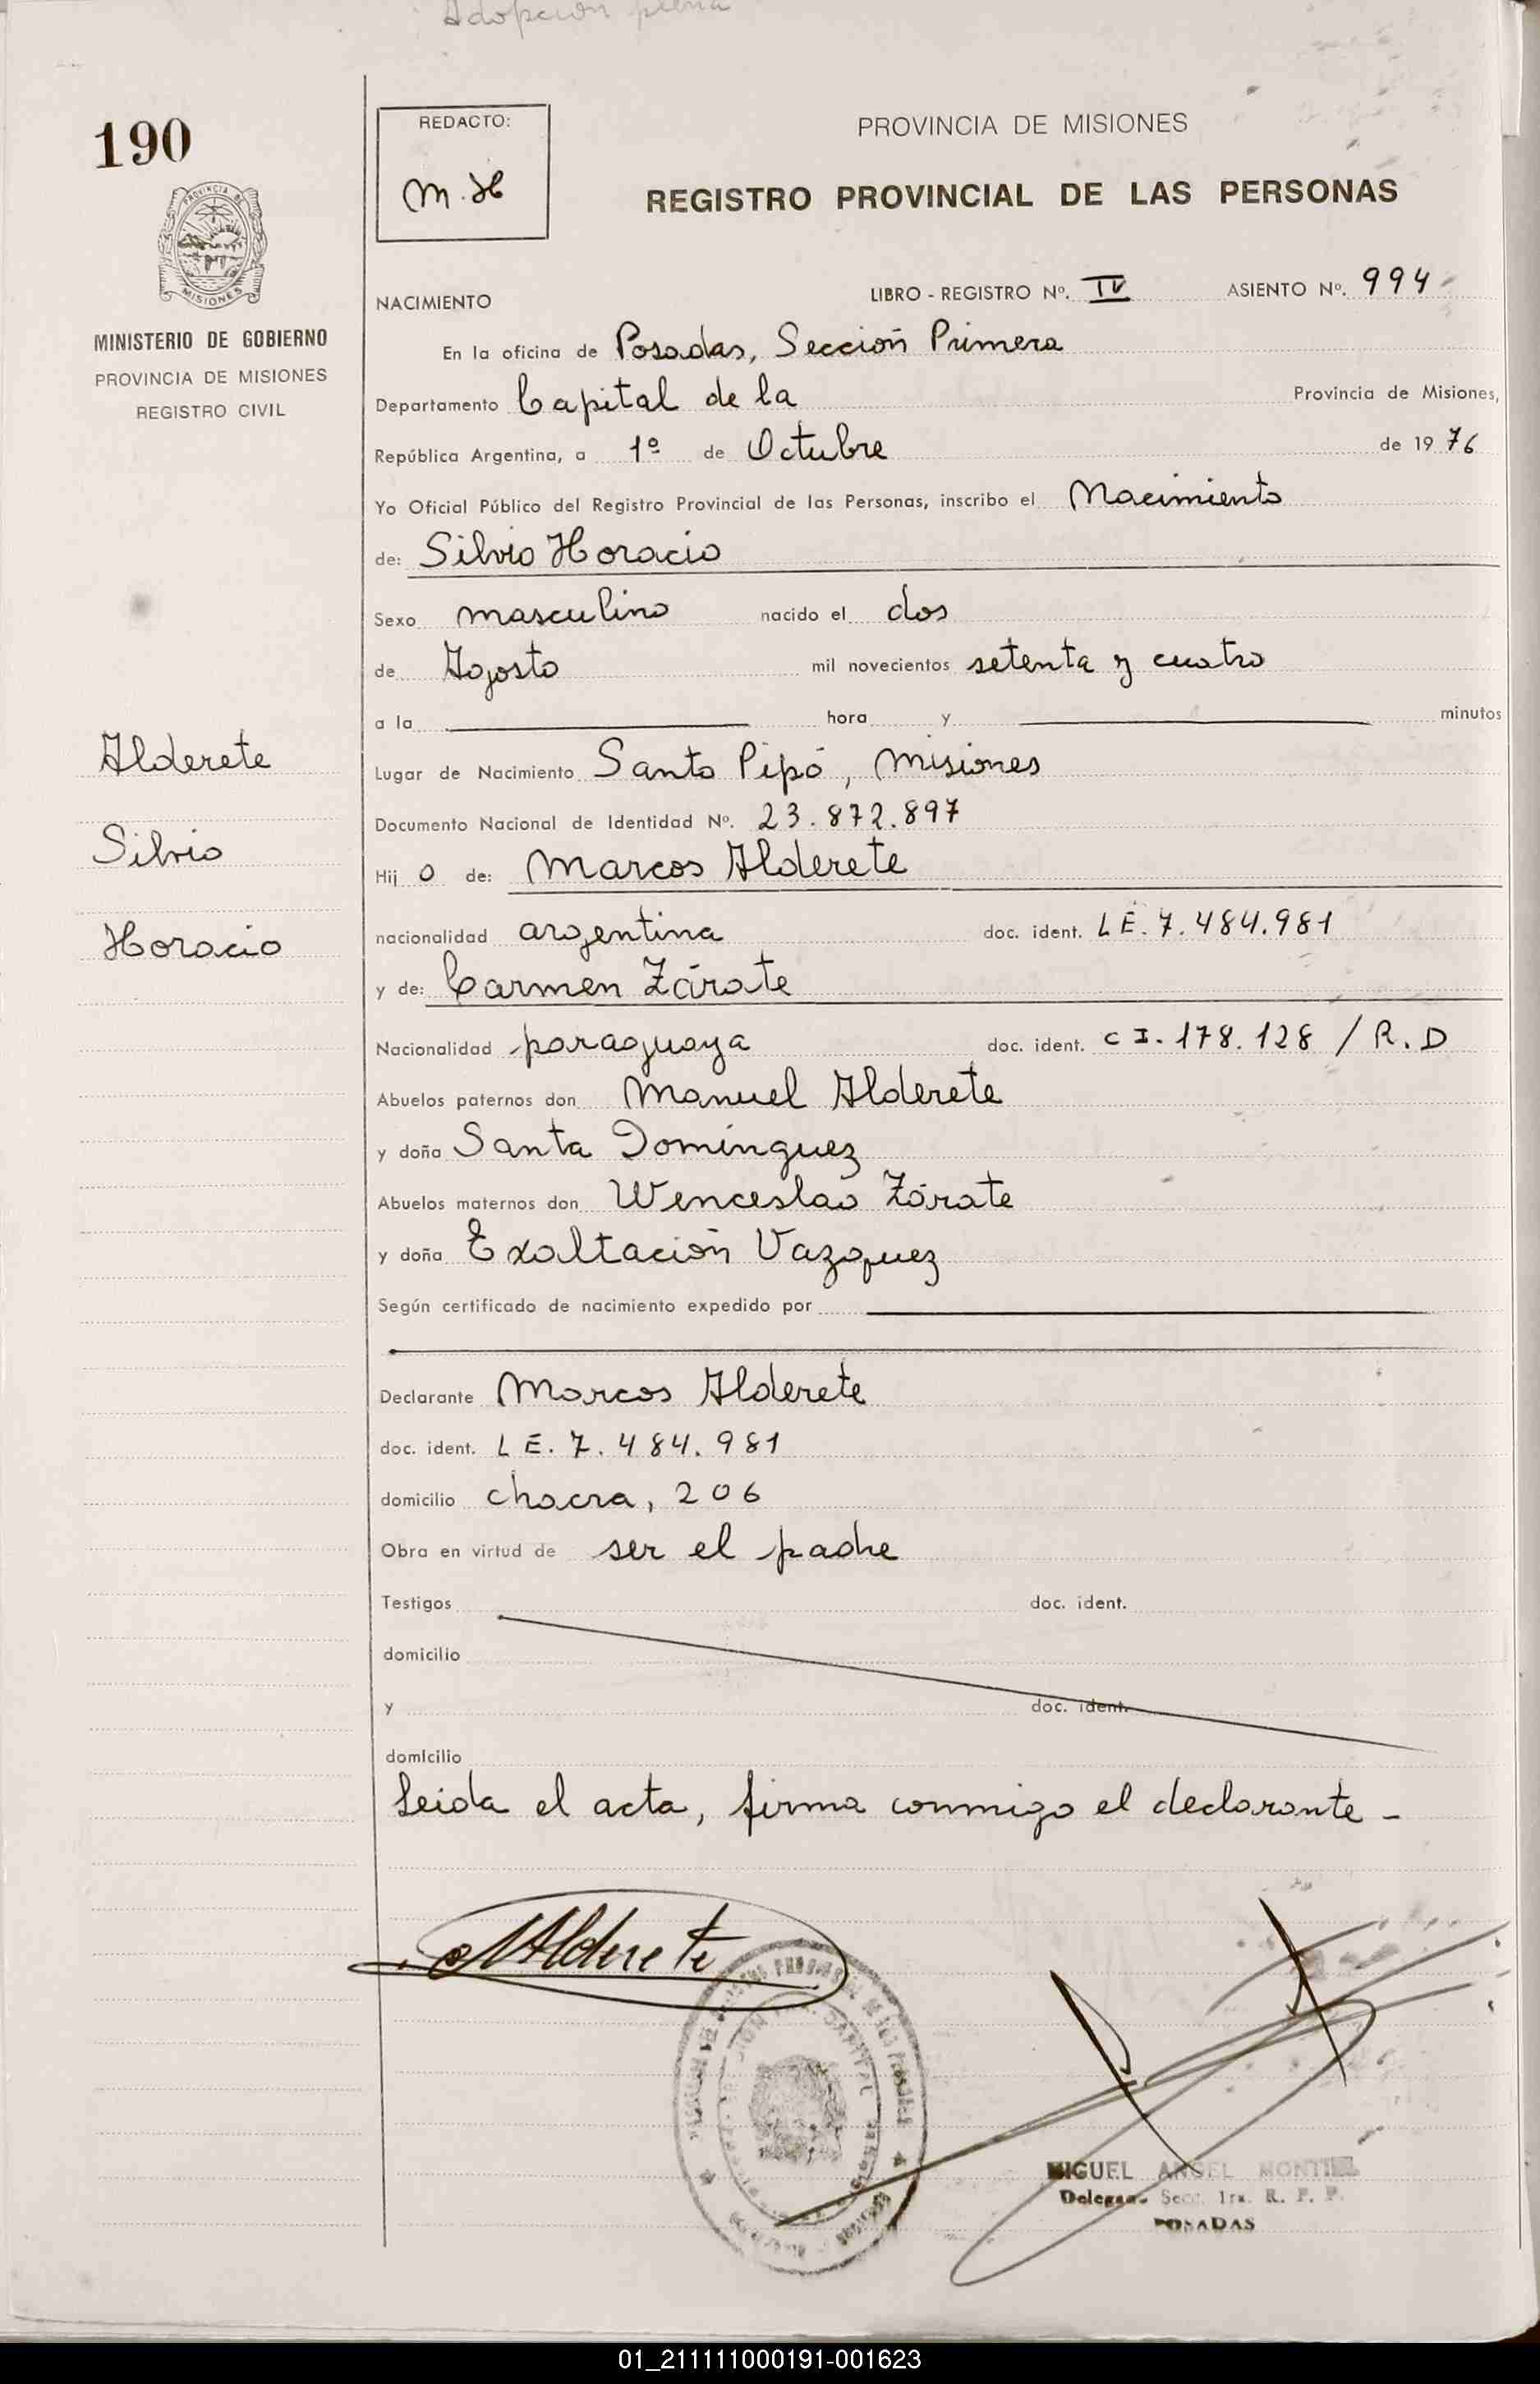 Adopcion plena
190
REDACTO:
M.H
PROVINCIA DE MISIONES
REGISTRO PROVINCIAL DE LAS PERSONAS
PROVINCIA DE
MISIONES
MINISTERIO DE GOBIERNO
PROVINCIA DE MISIONES
REGISTRO CIVIL
NACIMIENTO LIBRO - REGISTRO Nº. IV ASIENTO Nº. 994
En la oficina de Posadas, Sección Primera
Departamento Capital de la Provincia de Misiones,
República Argentina, a 1º de Octubre de 1976
Yo Oficial Público del Registro Provincial de las Personas, inscribo el Nacimiento
de: Silvio Horacio
Sexo masculino nacido el dos
de Agosto mil novecientos setenta y cuatro
a la hora y minutos
Alderete
Lugar de Nacimiento Santo Pipó, Misiones
Documento Nacional de Identidad Nº. 23.872.897
Silvio
Hij o de: Marcos Alderete
Horacio
nacionalidad argentina doc. ident. LE. 7.484.981
y de: Carmen Zárate
Nacionalidad paraguaya doc. ident. CI. 178.128 / R.D
Abuelos paternos don Manuel Alderete
y doña Santa Domínguez
Abuelos maternos don Wenceslao Zárate
y doña Exaltación Vazquez
Según certificado de nacimiento expedido por
Declarante Marcos Alderete
doc. ident. LE. 7.484.981
domicilio chacra, 206
Obra en virtud de ser el padre
Testigos doc. ident.
domicilio
y doc. ident.
domicilio
Leida el acta, firma conmigo el declarante -
MAlderete
MIGUEL ANGEL MONTIEL
Delegado Secc. 1ra. R. P. P.
POSADAS
01_211111000191-001623